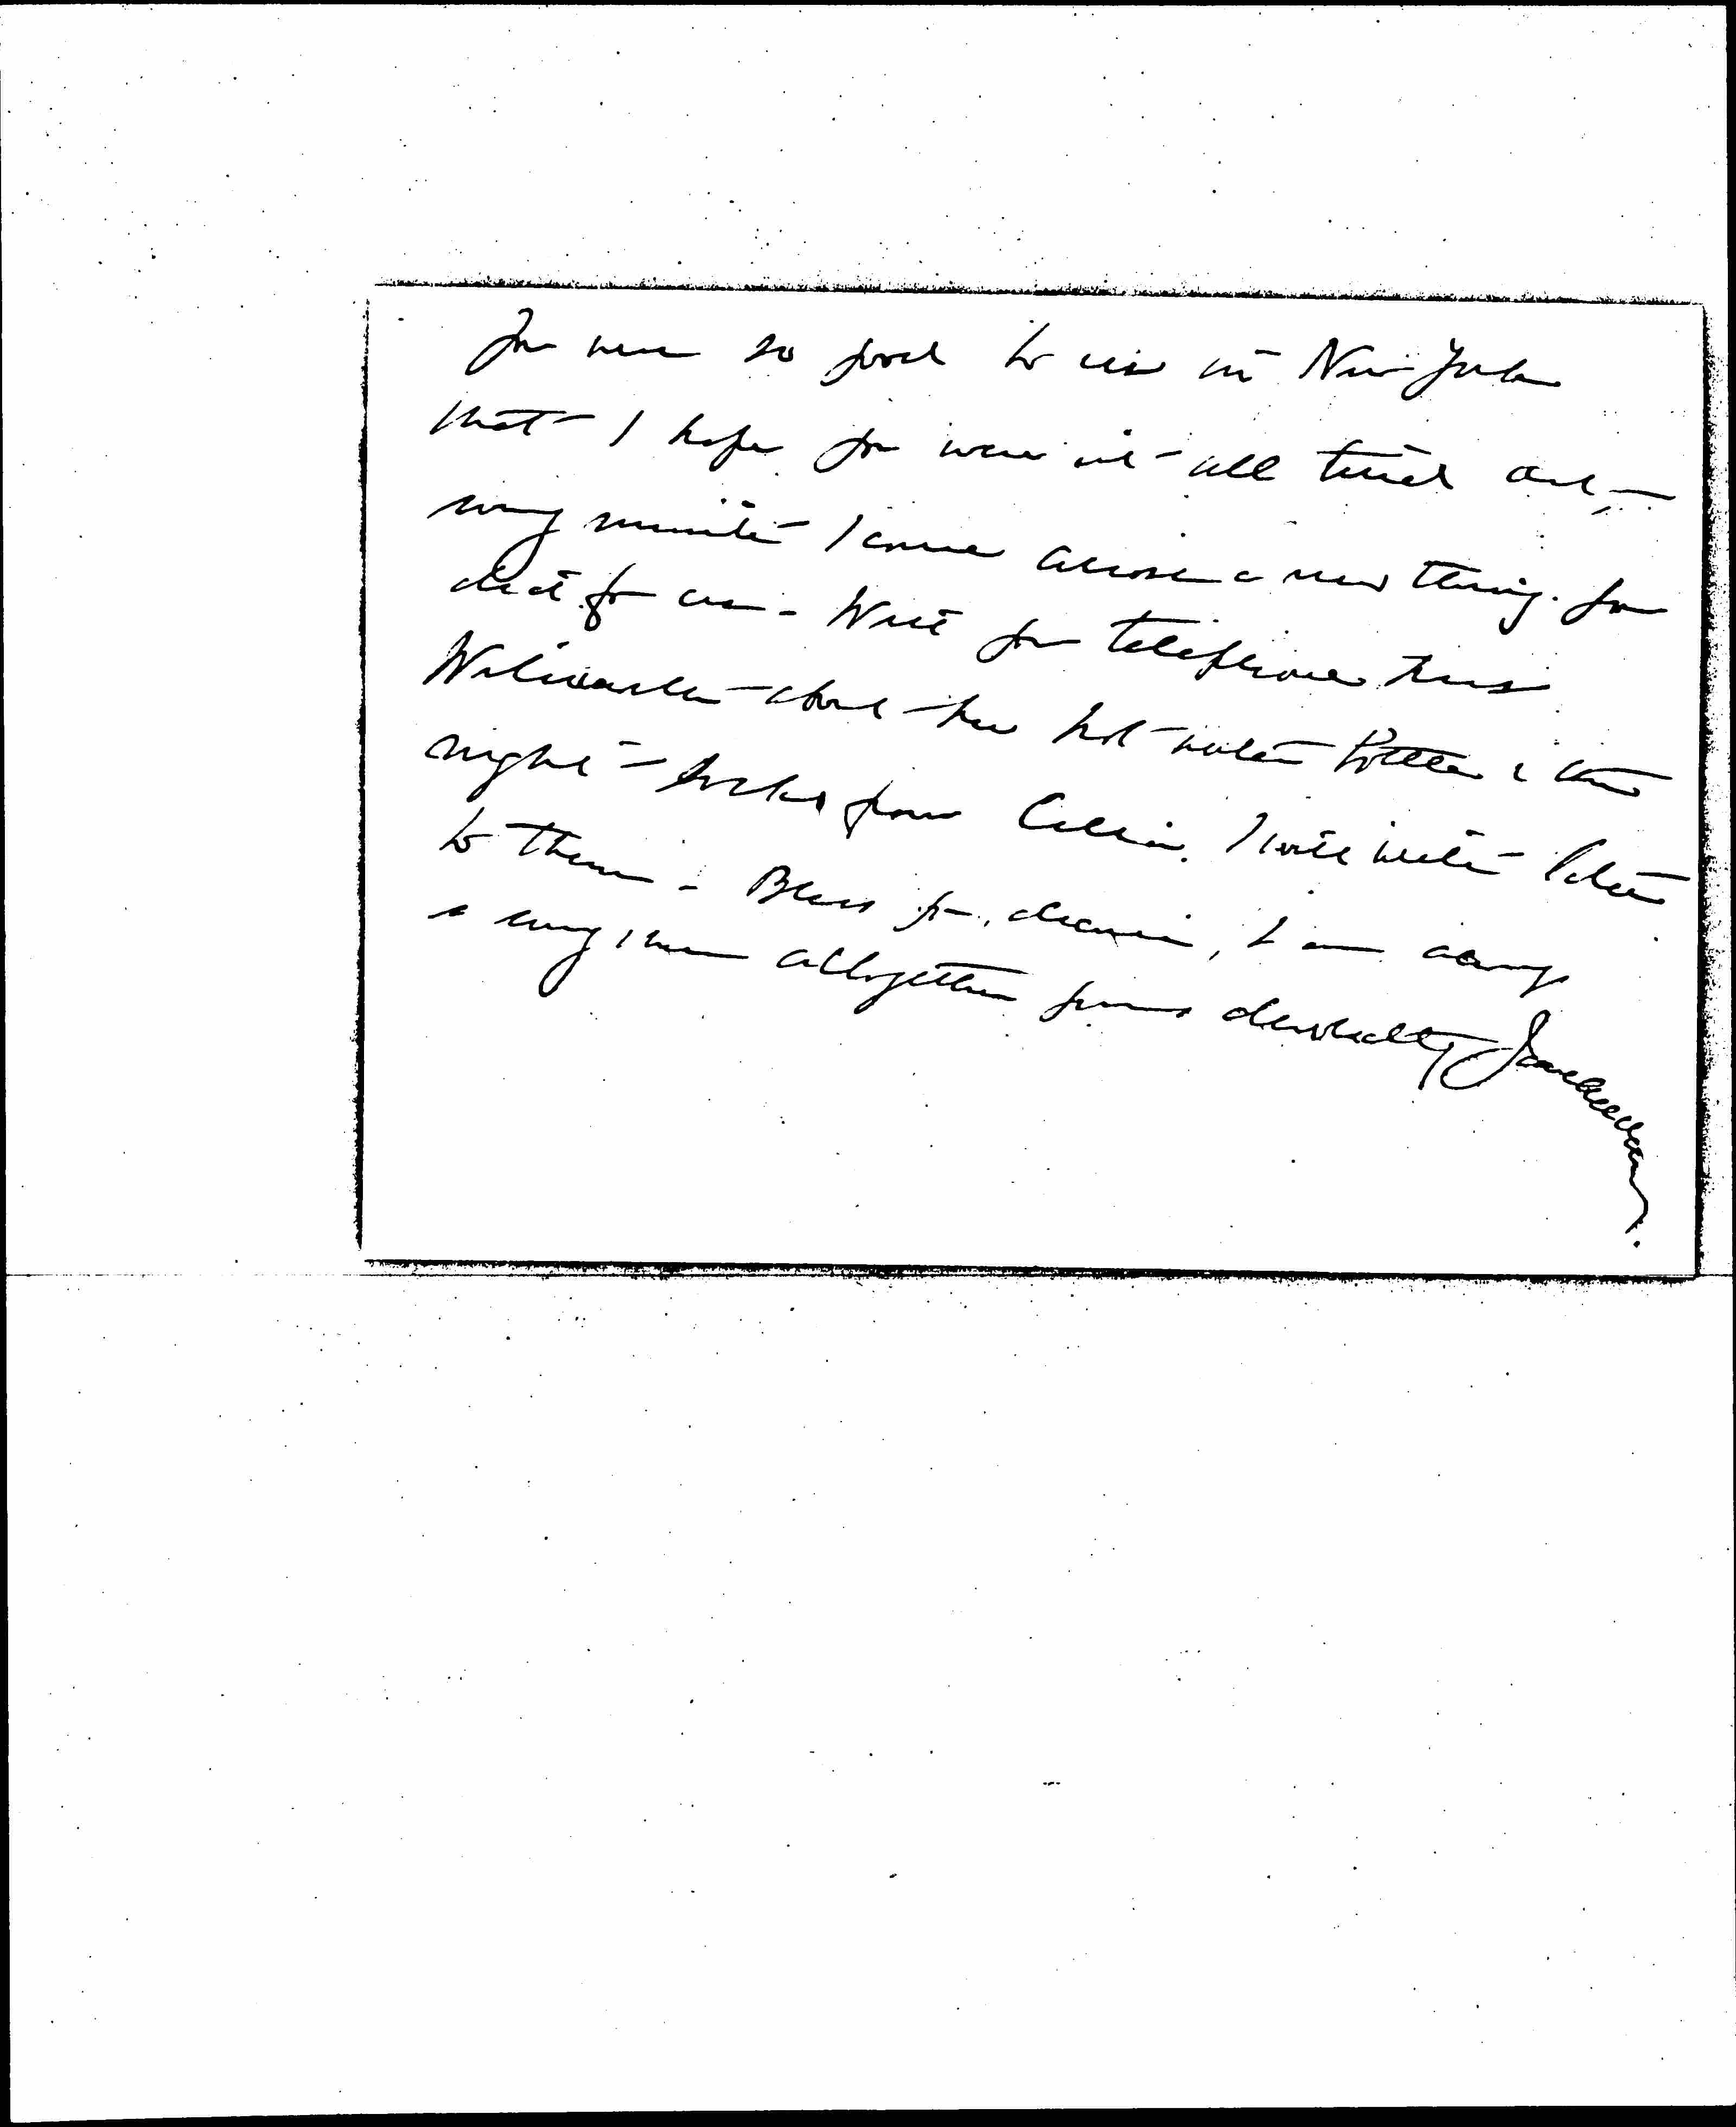 You were so good to us in New York
that I hope you were not all tired out —
every minute I come across a new thing you
did for us - Will you telephone Mrs
about the hot water bottle & the
night - socks from Celia. I will write later
to them - Bless you, dearie, I am always
& ever, altogether yours devotedly Jane Addams.